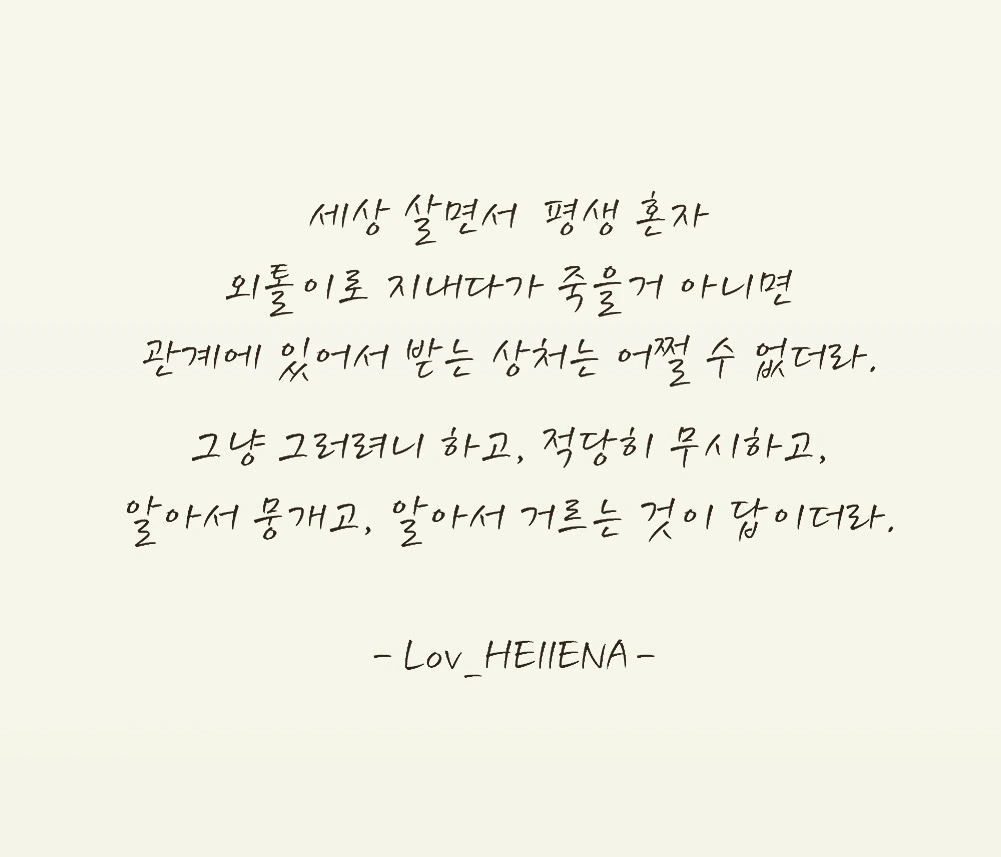 세상 살면서 평생 혼자
외톨이로 지내다가 죽을거 아니면
관계에 있어서 받는 상처는 어쩔 수 없더라.
그냥 그러려니 하고, 적당히 무시하고,
알아서 뭉개고, 알아서 거르는 것이 답이더라.
- Lov_HEllENA -